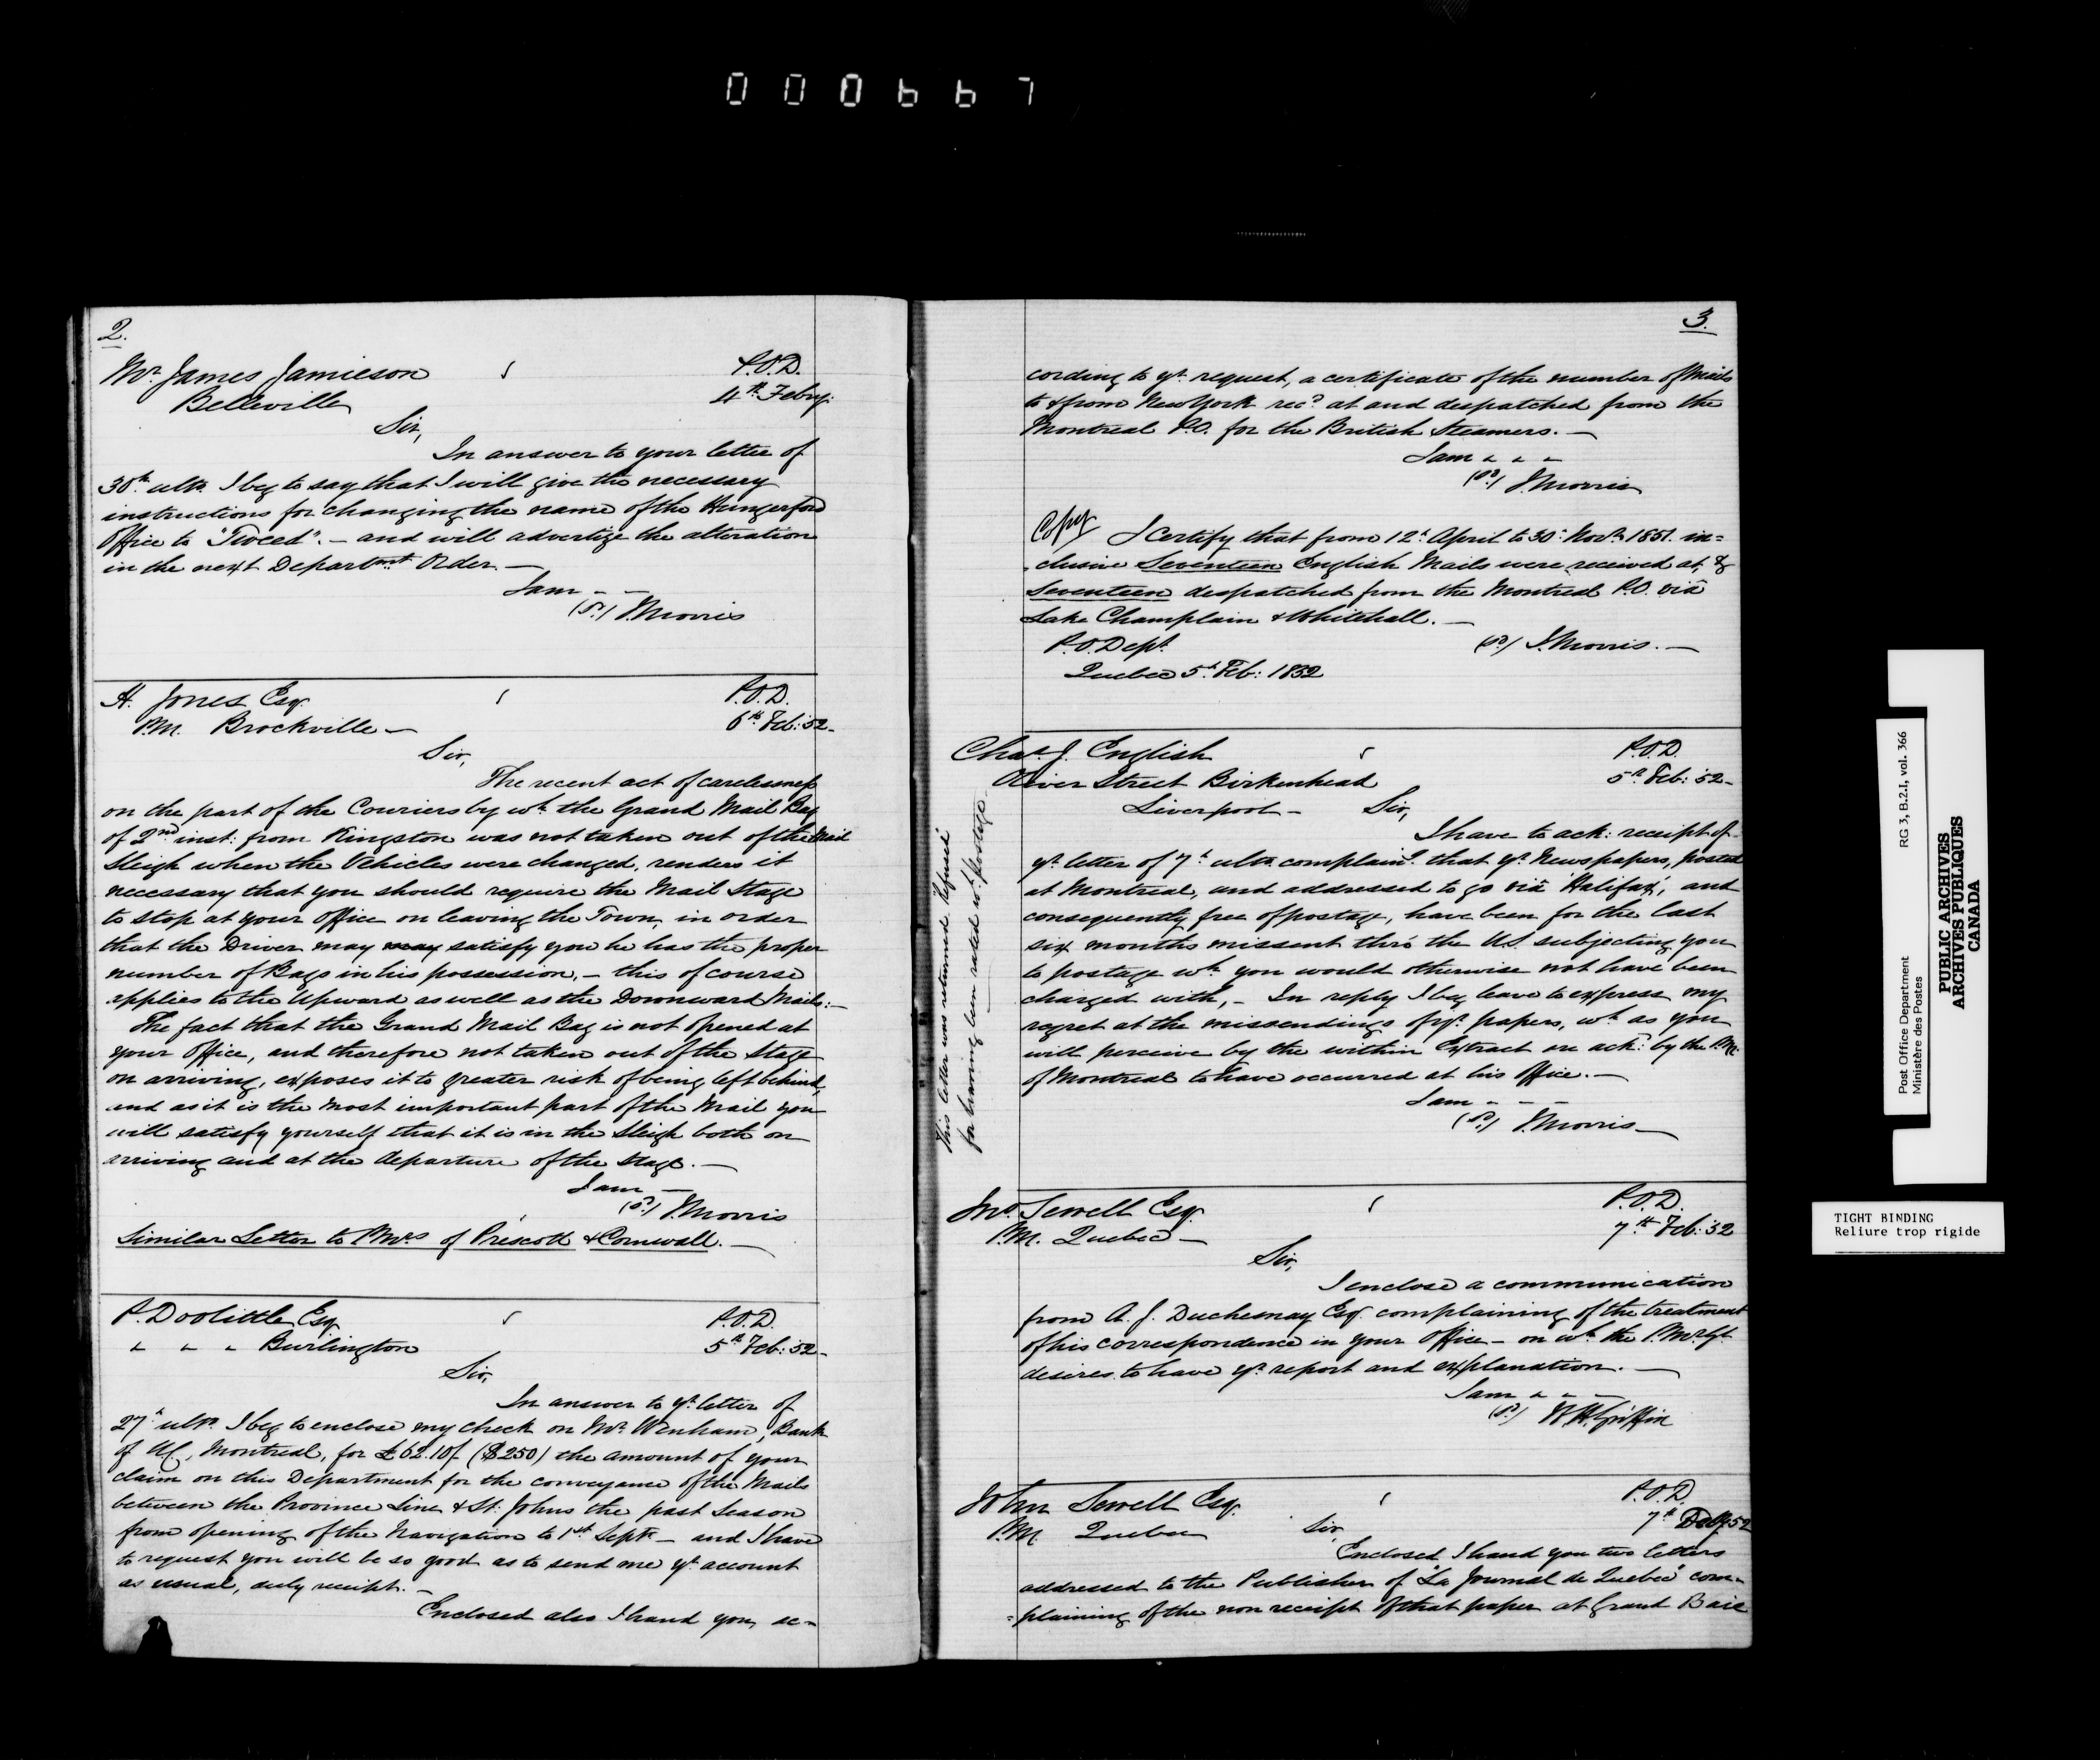 000667
2.
Mr. James Jamieson P.O.D.
Belleville 4th Febry.
Sir,
In answer to your letter of
30th ulto. I beg to say that I will give the necessary
instructions for changing the name of the Hungerford
Office to "Tweed". – and will advertize the alteration
in the next Departmt. Order. —
I am – –
(Sd.) J. Morris
H. Jones Esq. P.O.D.
P.M. Brockville — 6th Feb: 52 –
Sir,
The recent act of carelessness
on the part of the Couriers by wh. the Grand Mail Bag
of 2nd inst: from Kingston was not taken out of the Mail
Sleigh when the Vehicles were changed, renders it
necessary that you should require the Mail Stage
to stop at your Office on leaving the Town, in order
that the Driver may may satisfy you he has the proper
number of Bags in his possession, – this of course
applies to the Upward as well as the Downward Mails: —
The fact that the Grand Mail Bag is not opened at
your Office, and therefore not taken out of the Stage
on arriving, exposes it to greater risk of being left behind,
and as it is the most important part of the Mail you
will satisfy yourself that it is in the Sleigh both on
arriving and at the departure of the Stage. —
I am —
(Sd.) J. Morris
Similar Letter to P.Mrs of Prescott & Cornwall. —
P. Doolittle Esq P.O.D.
" " " Burlington 5th Feb: 52 –
Sir,
In answer to yr. letter of
27th ulto. I beg to enclose my check on Mr. Wenham, Bank
of UC, Montreal, for £62.10/. ($250) the amount of your
claim on this Department for the conveyance of the Mails
between the Province Line & St. Johns the past Season
from opening of the Navigation to 1st Septr. – and I have
to request you will be so good as to send me yr. account
as usual, duly receipt. –
Enclosed also I hand you, ac-
3.
cording to yr. request, a certificate of the number of Mails
to & from New York recd. at and despatched from the
Montreal P.O. for the British Steamers. —
I am " " "
(Sd.) J. Morris
Copy I Certify that from 12th April to 30th Novr. 1851. in=
clusive Seventeen English Mails were received at, &
Seventeen despatched from the Montreal P.O. viâ
Lake Champlain & Whitehall. —
P.O. Dept. (Sd.) J. Morris. —
Quebec 5th Feb: 1852
Chas. J. English P.O.D.
Oliver Street Birkenhead 5th Feb: 52 –
Liverpool – Sir,
I have to ack: receipt of
yr. letter of 7th ulto. complaing. that yr. Newspapers, posted
at Montreal, and addressed to go viâ 'Halifax', and
consequently free of postage, have been for the last
six months missent thro' the U.S. subjecting you
to postage wh. you would otherwise not have been
charged with, – In reply I beg leave to express my
regret at the missendings of yr. papers, wh. as you
will perceive by the within Extract are ackd. by the P.M.
of Montreal to have occurred at his Office. —
I am – – –
(Sd.) J. Morris —
This letter was returned "Refused"
for having been rated wh. postage.
Jno. Sewell Esq. P.O.D.
P.M. Quebec — 7th Feb: 52
Sir,
I enclose a communication
from A. J. Duchesnay Esq. complaining of the treatment
of his correspondence in your Office – on wh. the P.M. Gl.
desires to have yr. report and explanation. —
I am " " –
(Sd.) W. H. Griffin
John Sewell Esq. P.O.D.
P.M. Quebec Sir, 7th 52
Enclosed I hand you two letters
addressed to the Publisher of "La Journal de Quebec" com=
=plaining of the non receipt of that paper at Grand Baie
Post Office Department RG 3, B.2.I, vol. 366
Ministère des Postes
PUBLIC ARCHIVES
ARCHIVES PUBLIQUES
CANADA
TIGHT BINDING
Reliure trop rigide